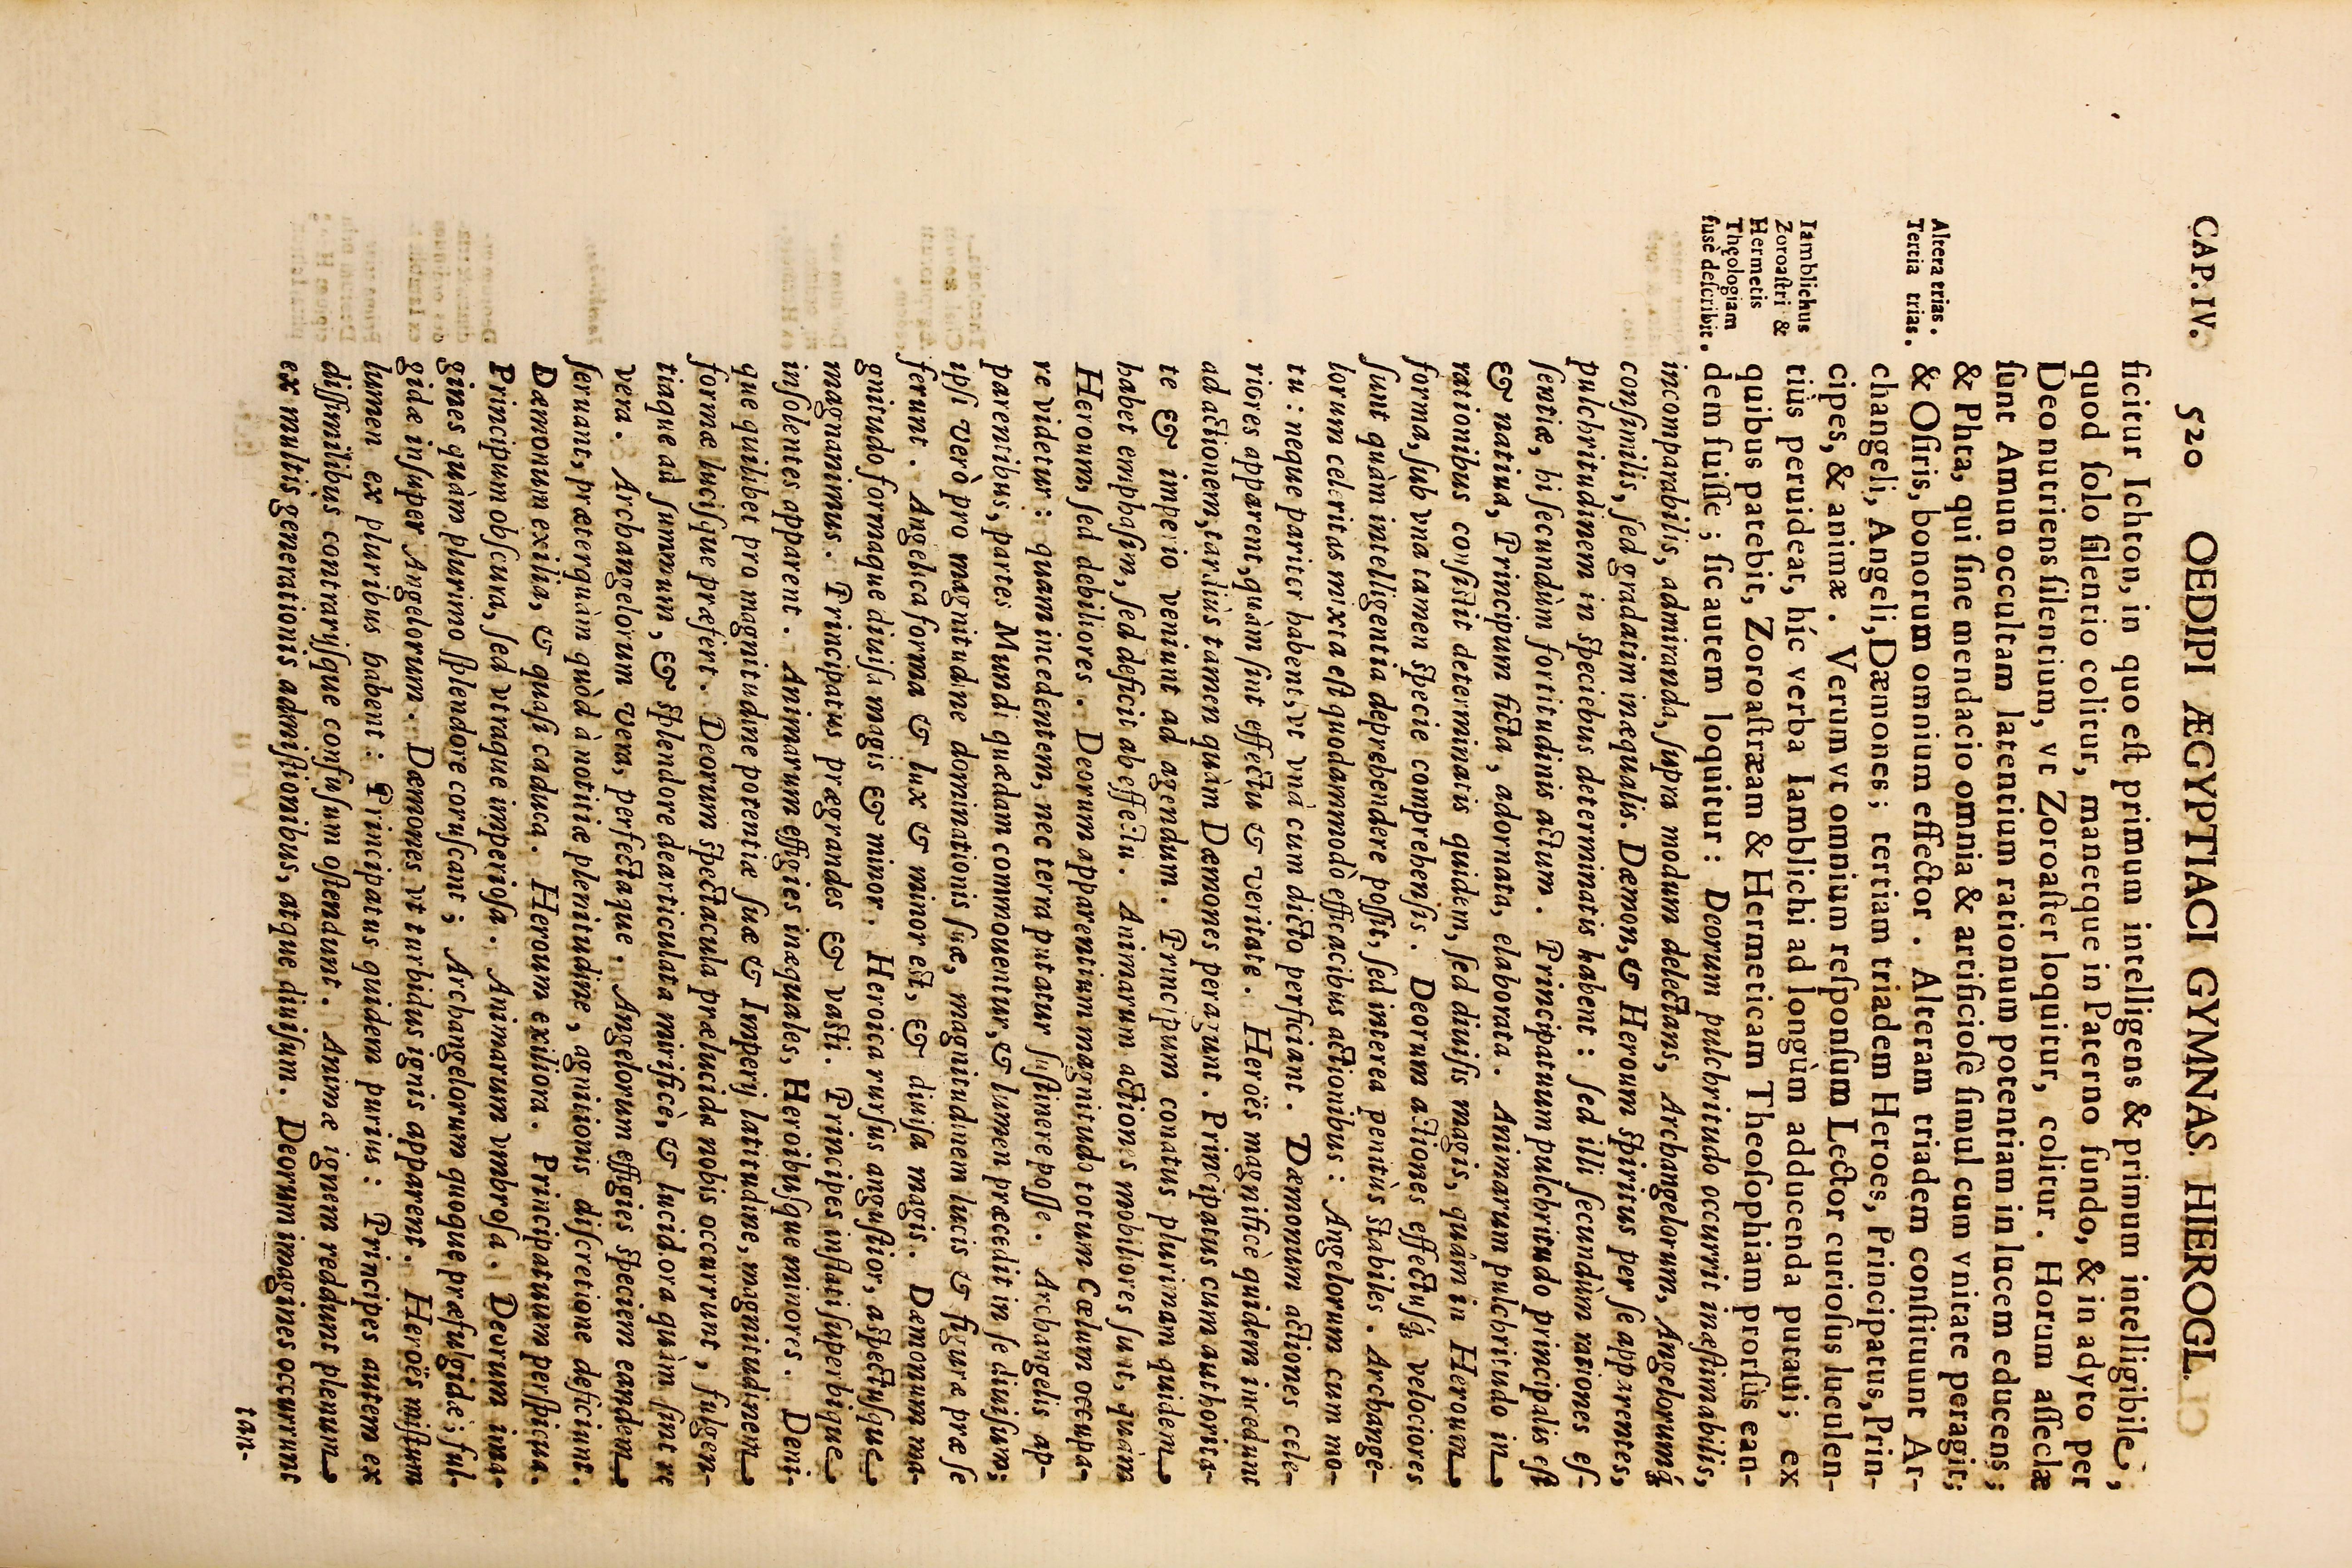 CAP. IV. 520 OEDIPI ÆGYPTIACI GYMNAS. HIEROGL.
ficitur Ichton, in quo eſt primum intelligens & primum intelligibile,
quod ſolo ſilentio colitur, manetque in Paterno fundo, & in adyto per
Deo nutriens ſilentium, vt Zoroaſter loquitur, colitur. Horum aſſeclæ
ſunt Amun occultam latentium rationum potentiam in lucem educens;
& Phta, qui ſine mendacio omnia & artificioſe ſimul cum vnitate peragit;
Altera trias.
& Oſiris, bonorum omnium effector. Alteram triadem conſtituunt Ar-
Tertia trias.
changeli, Angeli, Dæmones; tertiam triadem Heroes, Principatus, Prin-
cipes, & animæ. Verum vt omnium reſponſum Lector curioſus luculen-
tiùs peruideat, híc verba Iamblichi ad longùm adducenda putaui; ex
quibus patebit, Zoroaſtræam & Hermeticam Theoſophiam prorſùs ean-
Iamblichus
Zoroaſtri &
Hermetis
Theologiam
fusè deſcribit.
dem fuiſſe; ſic autem loquitur: Deorum pulchritudo occurrit inæſtimabilis,
incomparabilis, admiranda, ſupra modum delectans, Archangelorum, Angelorumq́
conſimilis, ſed gradatim inæqualis. Dæmon, & Heroum ſpiritus per ſe apparentes,
pulchritudinem in ſpeciebus determinatis habent: ſed illi ſecundùm rationes eſ-
ſentiæ, hi ſecundùm fortitudinis actum. Principatuum pulchritudo principalis eſt
& natiua, Principum ficta, adornata, elaborata. Animarum pulchritudo in
rationibus conſiſtit determinatis quidem, ſed diuiſis magis, quám in Heroum
forma, ſub vna tamen ſpecie comprehenſis. Deorum actiones effectuſq́; velociores
ſunt quàm intelligentia deprehendere poſſit, ſed interea penitùs ſtabiles. Archange-
lorum celeritas mixta eſt quodammodò efficacibus actionibus: Angelorum cum mo-
tu: neque pariter habent, vt vnà cum dicto perficiant. Dæmonum actiones cele-
riores apparent, quàm ſint effectu & veritate. Heroës magnificè quidem incedunt
ad actionem, tardiùs tamen quàm Dæmones peragunt. Principatus cum authorita-
te & imperio veniunt ad agendum. Principum conatus plurimam quidem
habet emphaſim, ſed deficit ab effectu. Animarum actiones mobiliores ſunt, quàm
Heroum, ſed debiliores. Deorum apparentium magnitudo totum Cælum occupa-
re videtur: quam incedentem, nec terra putatur ſuſtinere poſſe. Archangelis ap-
parentibus, partes Mundi quædam commouentur, & lumen præcedit in ſe diuiſum;
ipſi verò pro magnitudine dominationis ſuæ, magnitudinem lucis & figuræ præ ſe
ferunt. Angelica forma & lux & minor eſt, & diuiſa magis. Dæmonum ma-
gnitudo formaque diuiſa magis & minor. Heroica rurſus anguſtior, aſpectuſque
magnanimus. Principatus prægrandes & vaſti. Principes inflati ſuperbique
inſolentes apparent. Animarum effigies inæquales, Heroibuſque minores. Deni-
que quilibet pro magnitudine potentiæ ſuæ & Imperij latitudine, magnitudinem
formæ luciſque præfert. Deorum ſpectacula prælucida nobis occurrunt, fulgen-
tiaque ad ſummum, & ſplendore dearticulata mirificè, & lucidora quàm ſint re
vera. Archangelorum vera, perfectaque. Angelorum effigies ſpeciem eandem
ſeruant, præterquàm quòd à notitiæ plenitudine, agnitionis diſcretione deficiunt.
Dæmonum exilia, & quaſi caduca. Heroum exiliora. Principatuum perſpicua.
Principum obſcura, ſed vtraque imperioſa. Animarum vmbroſa. Deorum ima-
gines quàm plurimo ſplendore coruſcant; Archangelorum quoque præfulgidæ; ful-
gidæ inſuper Angelorum. Dæmones vt turbidus ignis apparent. Heroës miſtum
lumen ex pluribus habent: Principatus quidem purius: Principes autem ex
diſſimilibus contrarijſque confuſum oſtendunt. Animæ ignem reddunt plenum
ex multis generationis admiſtionibus, atque diuiſum. Deorum imagines occurrunt
tan-